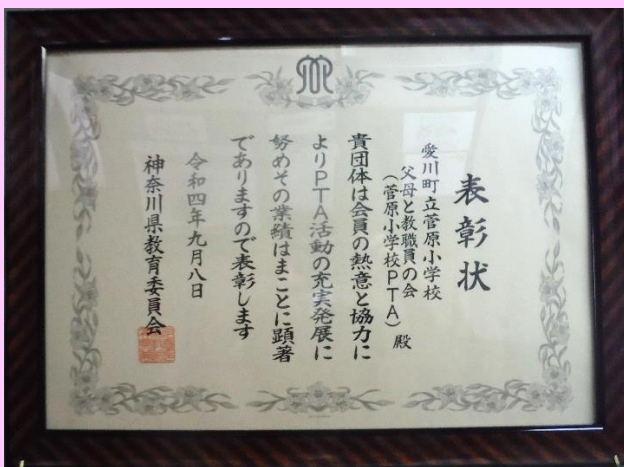 表彰状
愛川町立菅原小学校
父母と教職員の会
(菅原小学校PTA) 殿
貴団体は会員の熱意と協力に
よりPTA活動の充実発展に
努めその業績はまことに顕著
でありますので表彰します
令和四年九月八日
神奈川県教育委員会